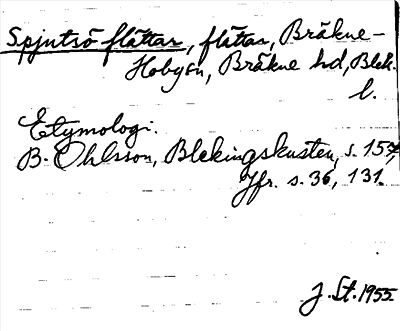 Spjutsö flättar, flättar, Bräkne-
Hobyån, Bräkne hd, Blek.
l.
Etymologi.
B. Ohlsson, Blekingskusten, s. 154,
Jfr. s. 36, 131.
J. St. 1955.